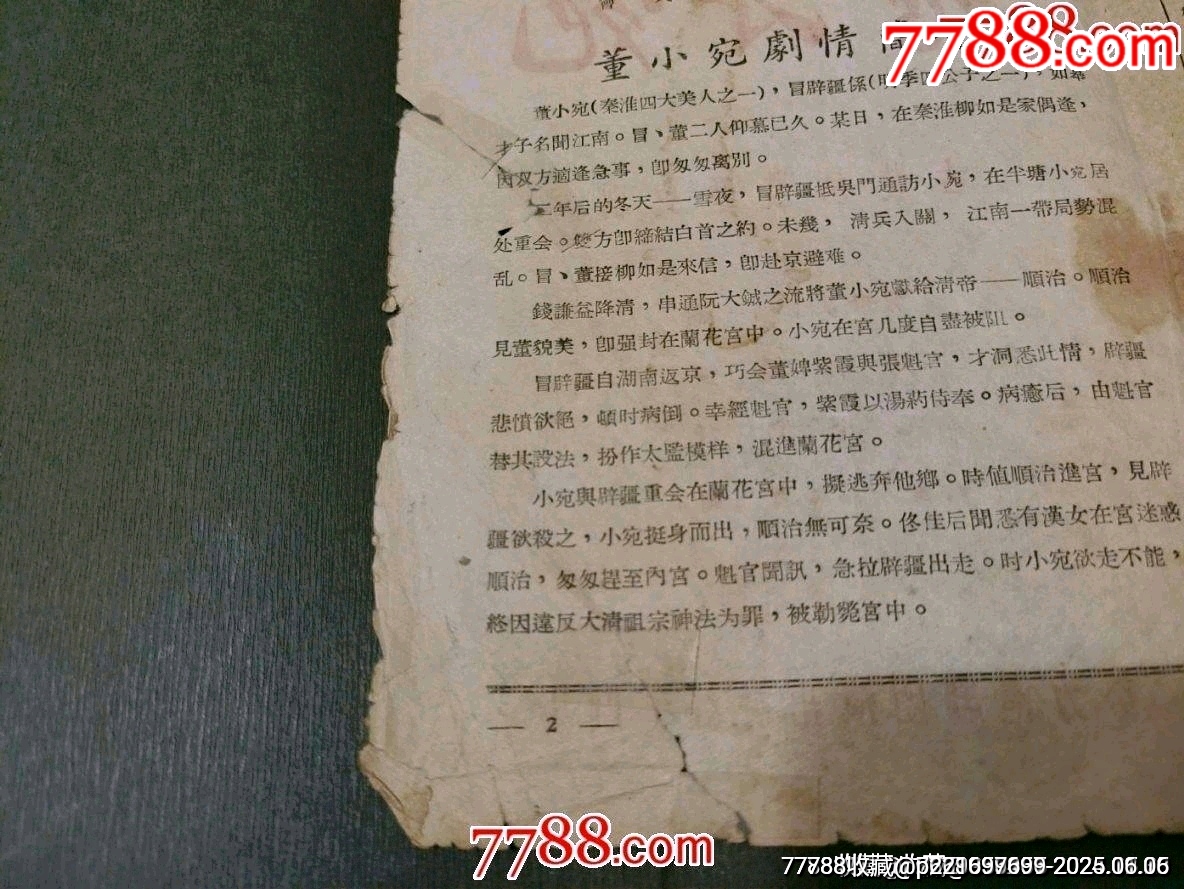 董小宛劇情
7788.com
董小宛(秦淮四大美人之一),冒辟疆係(明季四公子之一),如
才子名聞江南。冒、董二人仰慕已久。某日,在秦淮柳如是家偶逢,
因双方適逢急事,卽匆匆离別。
二年后的冬天——雪夜,冒辟疆抵吳門通訪小宛,在半塘小宛居
处重会。雙方卽締結白首之約。未幾,淸兵入關,江南一帶局勢混
乱。冒、董接柳如是來信,卽赴京避难。
錢謙益降清,串通阮大鋮之流將董小宛獻給淸帝——順治。順治
見董貌美,卽强封在蘭花宮中。小宛在宮几度自盡被阻。
冒辟疆自湖南返京,巧会董婢紫霞與張魁官,才洞悉此情,辟疆
悲憤欲絕,頓时病倒。幸經魁官,紫霞以湯葯侍奉。病癒后,由魁官
替其設法,扮作太監模样,混進蘭花宮。
小宛與辟疆重会在蘭花宮中,擬逃奔他鄉。時値順治進宮,見辟
疆欲殺之,小宛挺身而出,順治無可奈。佟佳后聞悉有漢女在宮迷惑
順治,匆匆趕至內宮。魁官聞訊,急拉辟疆出走。时小宛欲走不能,
終因違反大清祖宗神法为罪,被勒斃宮中。
— 2 —
7788.com
7788收藏@p221697699-2025.06.06